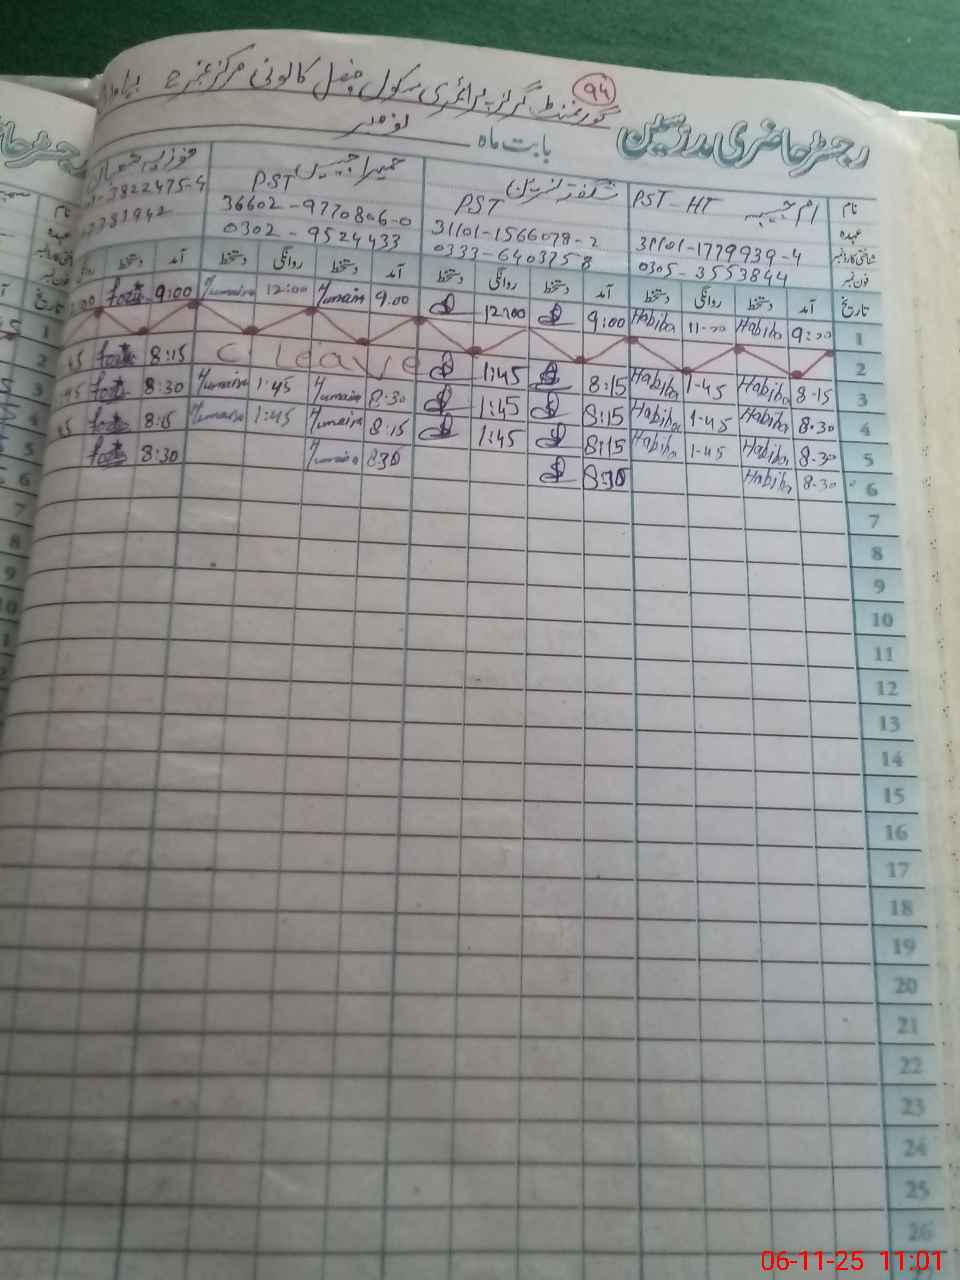 94
گورنمنٹ گرلز پرائمری سکول مغل کالونی مرکز نمبر 2
رجسٹر حاضری مدرسین
بابت ماہ نومبر
نام ام حبیبہ PST - HT
عہدہ
شناختی کارڈ نمبر 31101-1779939-4
فون نمبر 0305-3553844
شگفتہ نسرین
PST
31101-1566078-2
0333-6403758
حمیرا جبیں PST
36602-9770806-0
0302-9524433
3822475-4
تاریخ آمد دستخط روانگی دستخط آمد دستخط روانگی دستخط آمد دستخط روانگی دستخط آمد دستخط
1 9:00 Habiba 11-00 Habiba 9:00 12:00 9:00 Humaira 12:00 Humaira 9:00
2
3 8-15 Habiba 1-45 Habiba 8:15 1:45 C leave 8:15
4 8-30 Habiba 1-45 Habiba 8:15 1:45 8:30 Humaira 1:45 Humaira 8:30
5 8-30 Habiba 1-45 Habiba 8:15 1:45 8:15 Humaira 1:45 Humaira 8:15
6 8-30 Habiba 8:30 8:30 Humaira 8:30
7
8
9
10
11
12
13
14
15
16
17
18
19
20
21
22
23
24
25
26
06-11-25 11:01